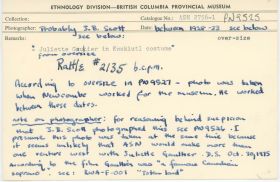 ETHNOLOGY DIVISION—BRITISH COLUMBIA PROVINCIAL MUSEUM
Collection: Catalogue No.: ASN 2756-1 PN9525
Photographer: Probably J.B. Scott see below: Date: between 1928-33 see below
Remarks: over-size
"Juliette Gaultier in Kwakiutl costume"
from oversize
Rattle #2135 b.c.p.m.
According to oversize in PN9527 - photo was taken
when Newcombe worked for the museum. He worked
between those dates.
note on photographer: for reasoning behind suspicion
that J.B. Scott photographed this see PN9526. I
presume this photo was taken at the same time because
it seems unlikely that ASN would make more than
one venture west with Juliette Gaultier. J.S. Oct. 30, 1975
According to the film Gaultier was a famous Canadian
soprano. see: RWA-F-001 "Totem land"